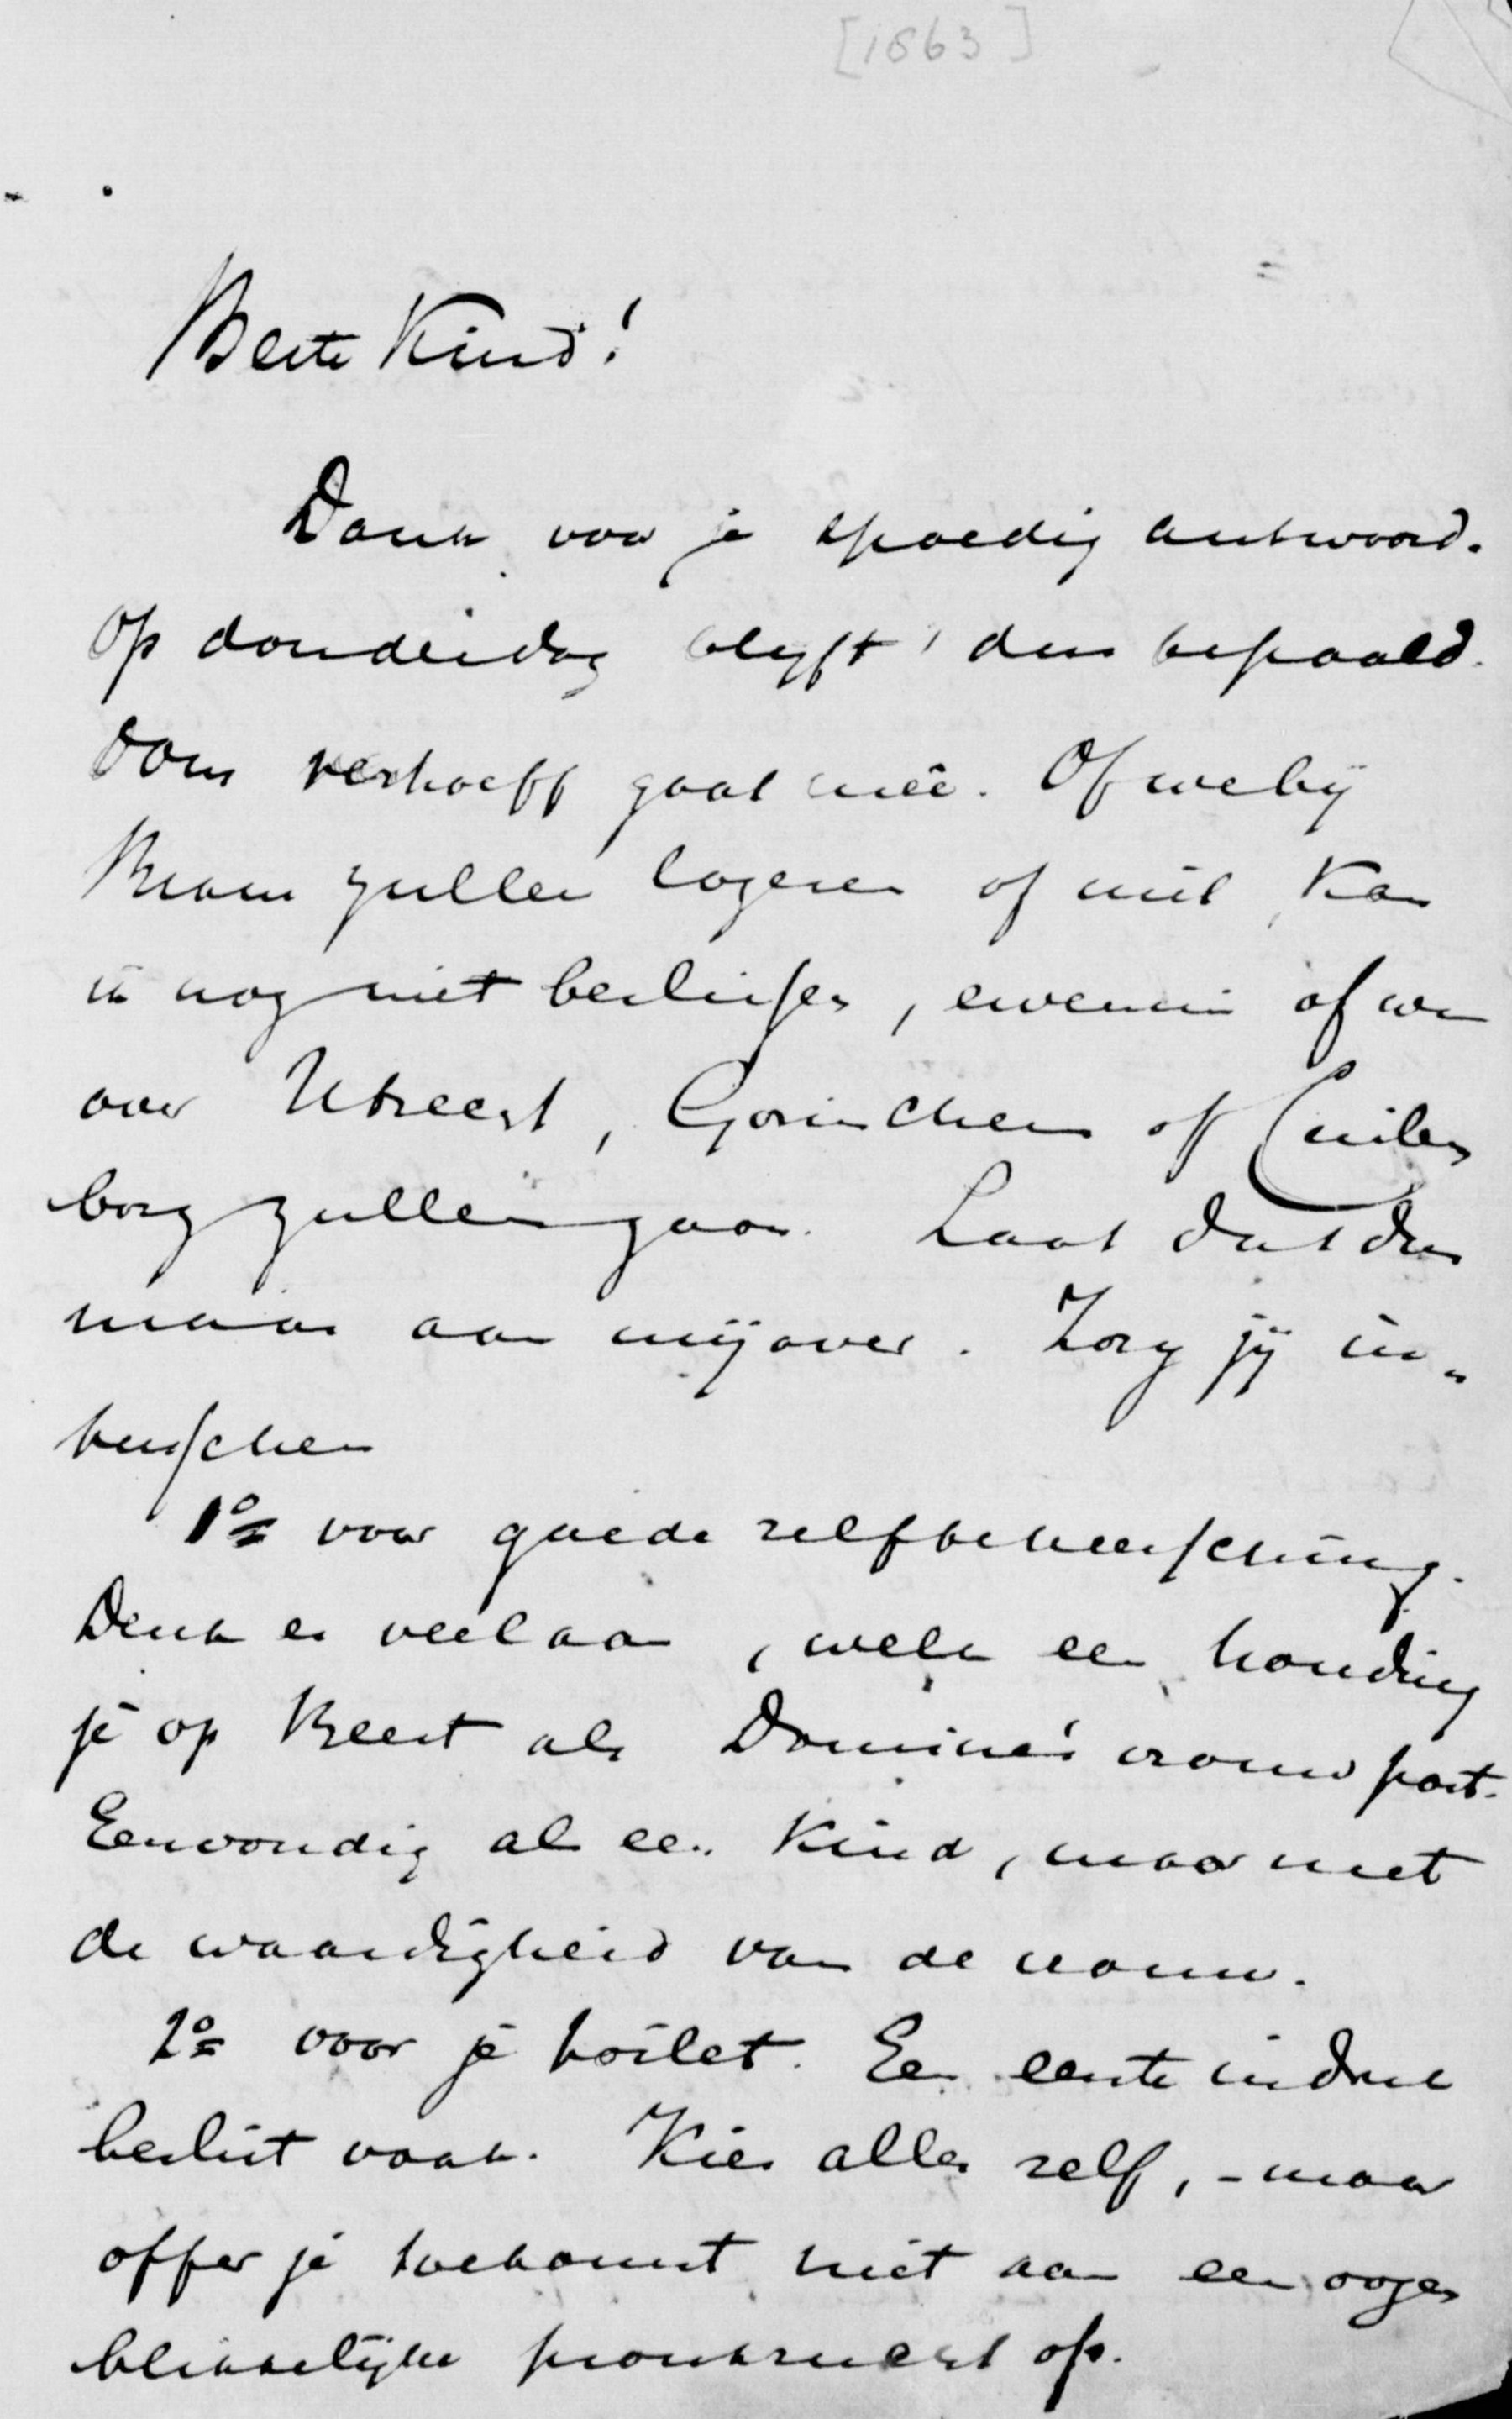 [1863]
Beste Kind!
Dank voor je spoedig antwoord.
Op donderdag blijft 't dus bepaald.
Oom Verhoeff gaat meê. Of we bij
Bram zullen logeren of niet kan
ik nog niet beslissen, evenmin of we
over Utrecht, Gorinchem of Cuilen
borg zullen gaan. Laat dat dus
maar aan mij over. Zorg jij in„
tusschen
1o voor goede zelfbeheersching.
Denk er veel aan, welk een houding
je op Beest als Dominé's vrouw past.
Eenvoudig als een kind, maar met
de waardigheid van de vrouw.
2o voor je toilet. Een eerste indruk
beslist vaak. Kies alles zelf, – maar
offer je toekomst niet aan een oogen
blikkelijke pronkzucht op.